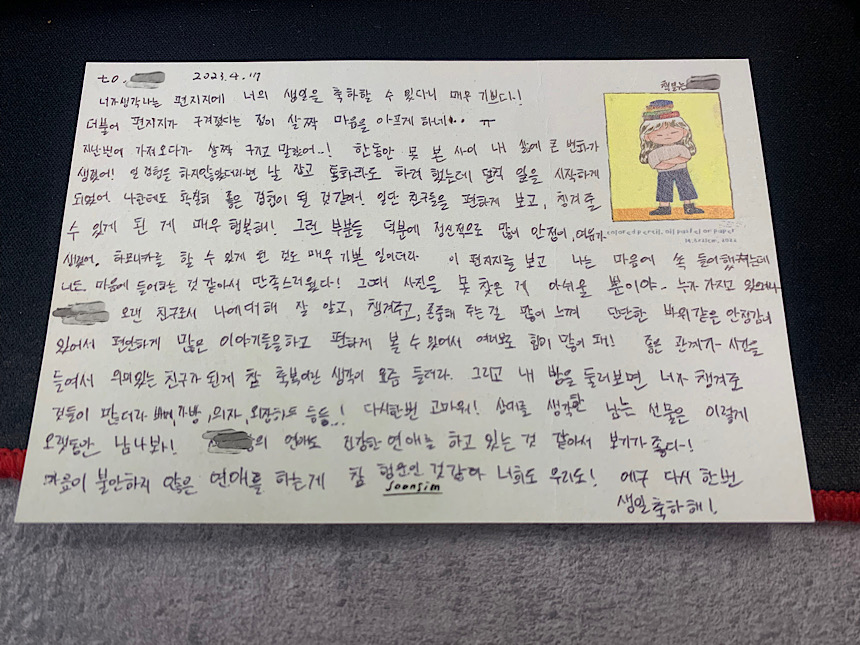 to. 2023.4.17
책 읽는
너가 생각나는 편지지에 너의 생일을 축하할 수 있다니 매우 기쁘다~!
더불어 편지지가 구겨졌다는 점이 살짝 마음을 아프게 하네.. ㅠ
지난번에 가져오다가 살짝 구기고 말았어..! 한동안 못 본 사이 내 삶에 큰 변화가
생겼어! 일 경험은 하지않았더라면 날 잡고 통화라도 하려 했는데 덜컥 일을 시작하게
되었어. 나한테도 확실히 좋은 경험이 될 것 같아! 일단 친구들을 편하게 보고, 챙겨줄
수 있게 된 게 매우 행복해! 그런 부분들 덕분에 정신적으로 많이 안정이, 여유가
colored pencil, oil pastel on paper
생겼어. 하모니카를 할 수 있게 된 것도 매우 기쁜 일이더라. 이 편지지를 보고 나는 마음에 쏙 들어했는데
너도 마음에 들어하는 것 같아서 만족스러웠다! 그때 사진을 못 찾은 게 아쉬울 뿐이야~ 누가 가지고 있으려나
오랜 친구로서 나에 대해 잘 알고, 챙겨주고, 존중해 주는걸 많이 느껴 단단한 바위같은 안정감이
있어서 편안하게 많은 이야기들을하고 편하게 볼 수 있어서 여러모로 힘이 많이 돼! 좋은 관계가 시간을
들여서 의미있는 친구가 된게 참 축복이란 생각이 요즘 들더라. 그리고 내 방을 둘러보면 너가 챙겨준
것들이 많더라 베개, 가방, 의자, 외장하드 등등..! 다시한번 고마워! 상대를 생각한 남는 선물은 이렇게
오랫동안 남나봐! 의 연애도 건강한 연애를 하고 있는 것 같아서 보기가 좋다~!
마음이 불안하지 않은 연애를 하는게 참 행운인 것 같아 너희도 우리도! 에구 다시 한번
soonsim
생일 축하해!